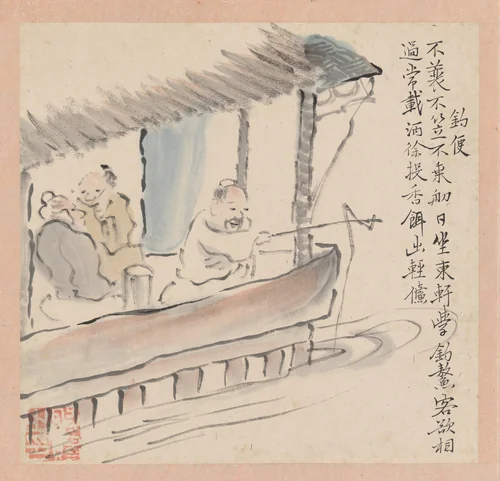 釣便
不蓑不笠不乗舠日坐東軒學釣鰲客欲相
過常載酒徐投香餌出輕儵